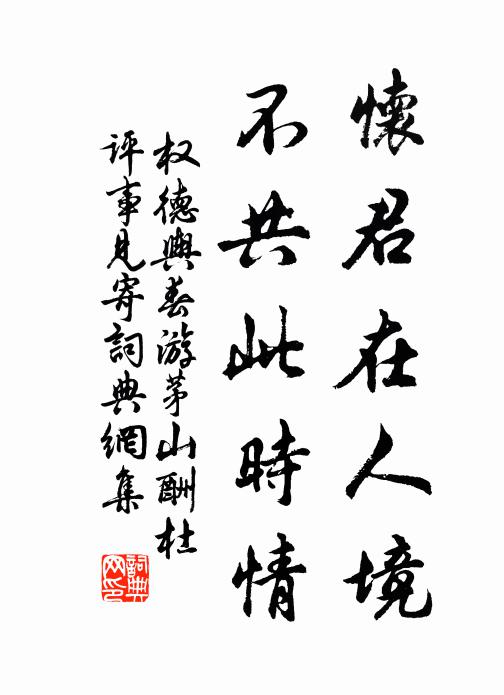 懷君在人境
不共此時情
权德輿春游茅山酬杜
評事見寄詞典網集
詞典網印